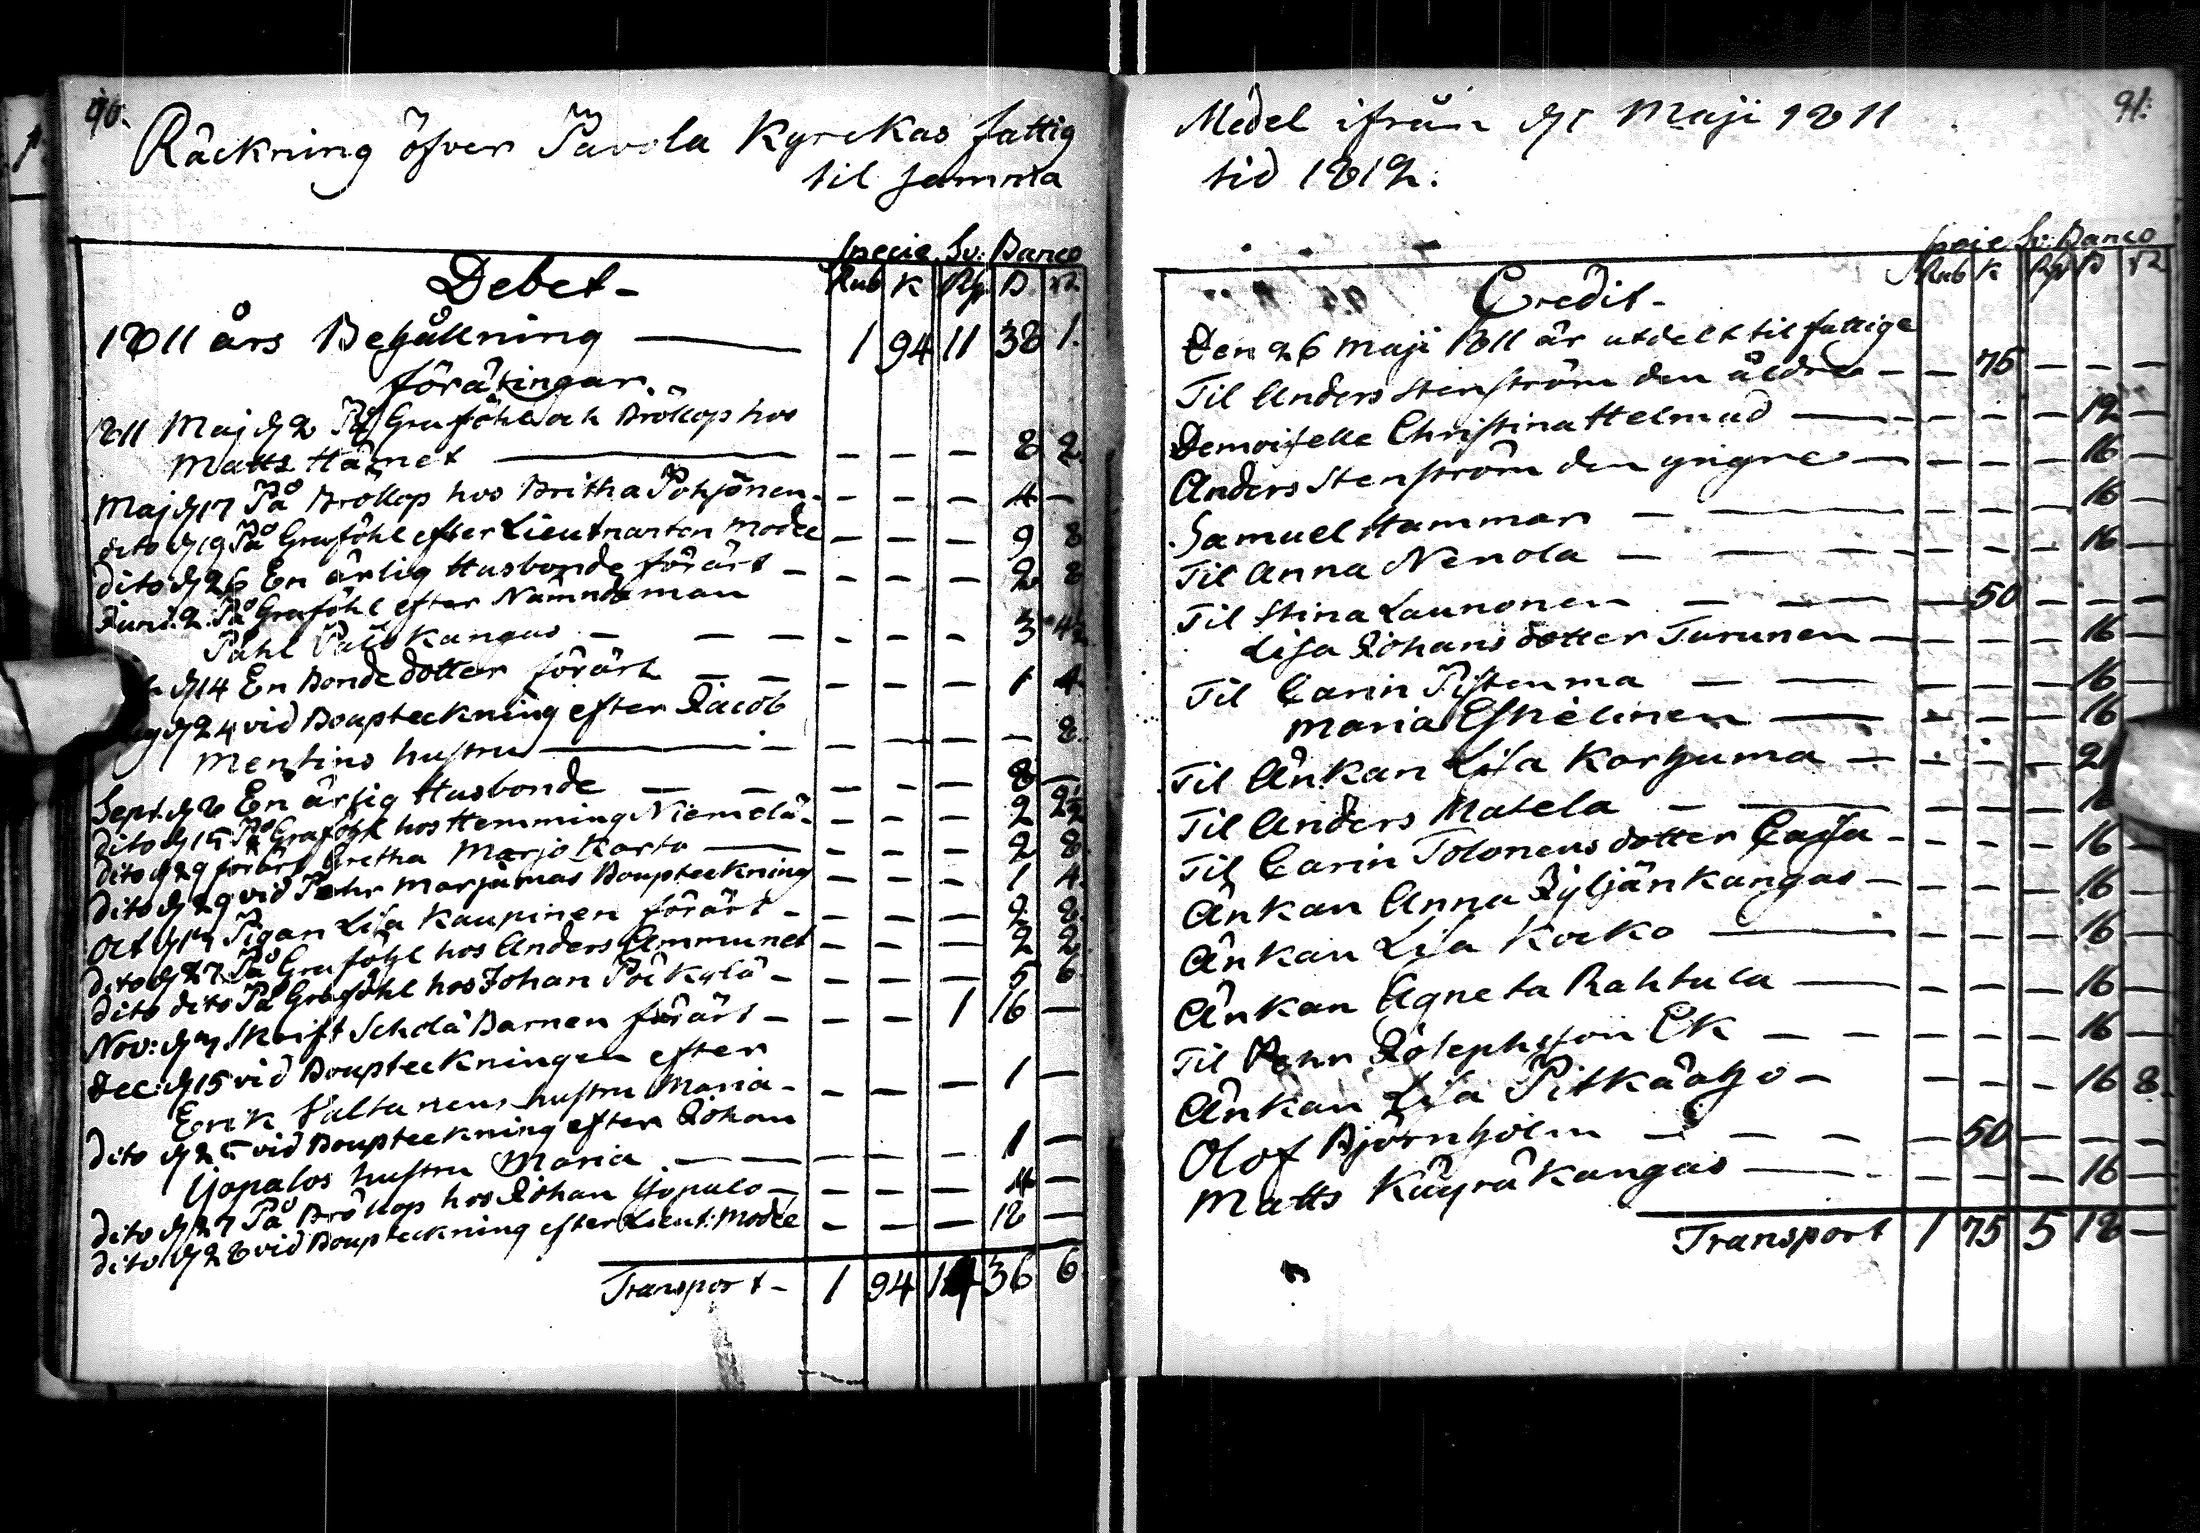 90.
Räckning öfver Pavola Kyrckas fattig
til samma
Specie Sv: Banco
Debet - Rub K Rd. B rst
1811 års Behållning — 1 94 11 38 1.
föräringar.
1811 Maj d 2 På Graföhl och Bröllop hos
Matts Hamet — - - - 8 2.
Maj d 17 På Bröllop hos Britha Pohjonen. - - - 4 -
dito d 19 På Graföhl efter Lieutnanten Modee - - - 9 8
dito d 26 En ärlig Husbonde förärt - - - - 2 8
Juni. 2. På Graföhl efter Nämndeman
Påhl Palokangas - - - - - - 3 4½
d 14 En Bonde dotter förärt - - - - - 1 4.
d 24 vid Boupteckning efter Jacob
Mentins hustru — - - - - 8.
Sept. d 8 En ärlig Husbonde - - - - - 8 -
dito d 15 På Graföhl hos Hemming Niemelä. - - - 2 2½
dito d 29 förärt Gretha Marjo Karto — - - - 2 8.
dito d 29 vid Pehr Marjamas Boupteckning - - - 1 4.
Oct d 17 Pigan Lisa Kaupinen förärt - - - - 2 8.
dito d 27 På Graföhl hos Anders Ammunet - - - 2 2.
dito dito På Graföhl hos Johan Poikylä - - - - 5 6.
Nov: d 7 Skrift Scholä Barnen förärt - - - 1 16 -
Dec: d 15 vid Boupteckningen efter
Erik Valtanens hustru Maria - - - - 1 -
dito d 25 vid Boupteckning efter Johan
Yopalos hustru Maria - — - - - 1 -
dito d 27 På Bröllop hos Johan Yopalo - - - - 4 -
dito d 28 vid Boupteckning efter Lieut: Modee - - - 18 -
Transport - 1 94 14 36 6.
91.
Medel ifrån d 1 Maji 1811
tid 1812.
Specie Sv: Banco
Credit - Rub K Rd B rst
Den 26 Maji 1811 är utdelt til fattige
Til Anders Stenström den äldre - - 75 - - -
Demoiselle Christina Helmud — - - - 12 -
Anders Stenström den yngre - - - - 16 -
Samuel Hammar - — - - - 16 -
Til Anna Nenola - — - - - 16 -
Til Stina Launonen - - - - 50 - - -
Lisa Johans dotter Turunen - - - - 16 -
Til Carin Pistenma - — - - - 16 -
Maria Eskelinen — - - - 16 -
Til Änkan Lisa Karhuma - - - - 2
Til Anders Matela - — - - - 16
Til Carin Tolonens dotter Caisa - - - - 16 -
Änkan Anna Jyljänkangas - - - - 16 -
Änkan Lisa Kocko — - - - 16 -
Änkan Agneta Rahtula — - - - 16 -
Til Pehr Josephsson Ek - - - - - 16 -
Änkan Lisa Pitkäaho - - - - 16 8.
Olof Björnholm - - - - - 50 - - -
Matts Käyräkangas — - - - 16 -
Transport 1 75 5 18 -